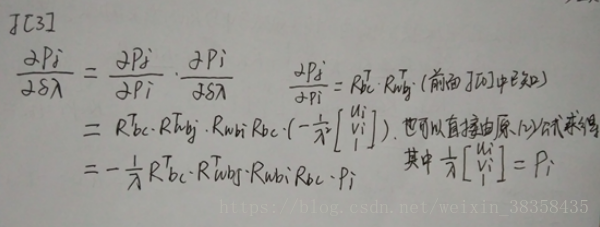 J[3]
∂Pj/∂δλ = ∂Pj/∂Pi · ∂Pi/∂δλ
∂Pj/∂Pi = Rᵀbc · Rᵀwbj · (前面J[0]中已知)
= Rᵀbc · Rᵀwbj · Rwbi Rbc · (-1/λ² [ui vi 1]). 也可以直接由原(2)公式求得
= -1/λ Rᵀbc · Rᵀwbj · Rwbi Rbc · Pi
其中 1/λ [ui vi 1] = Pi
https://blog.csdn.net/weixin_38358435